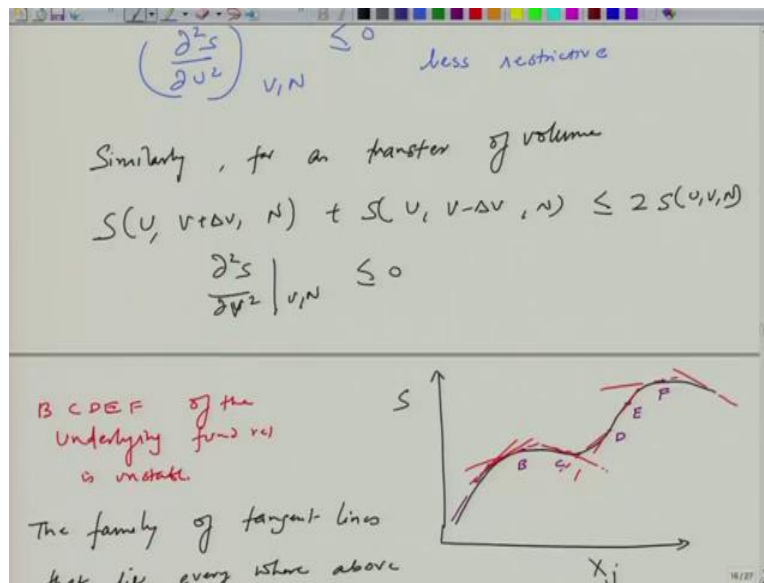 (∂²S/∂U²)_{V,N} ≤ 0
less restrictive
Similarly, for an transfer of volume
S(U, V+ΔV, N) + S(U, V-ΔV, N) ≤ 2S(U,V,N)
∂²S/∂V² |_{U,N} ≤ 0
B C D E F of the
underlying fund rel
is unstable.
The family of tangent lines
that lie every where above
S
B
C
D
E
F
X_j
16/27